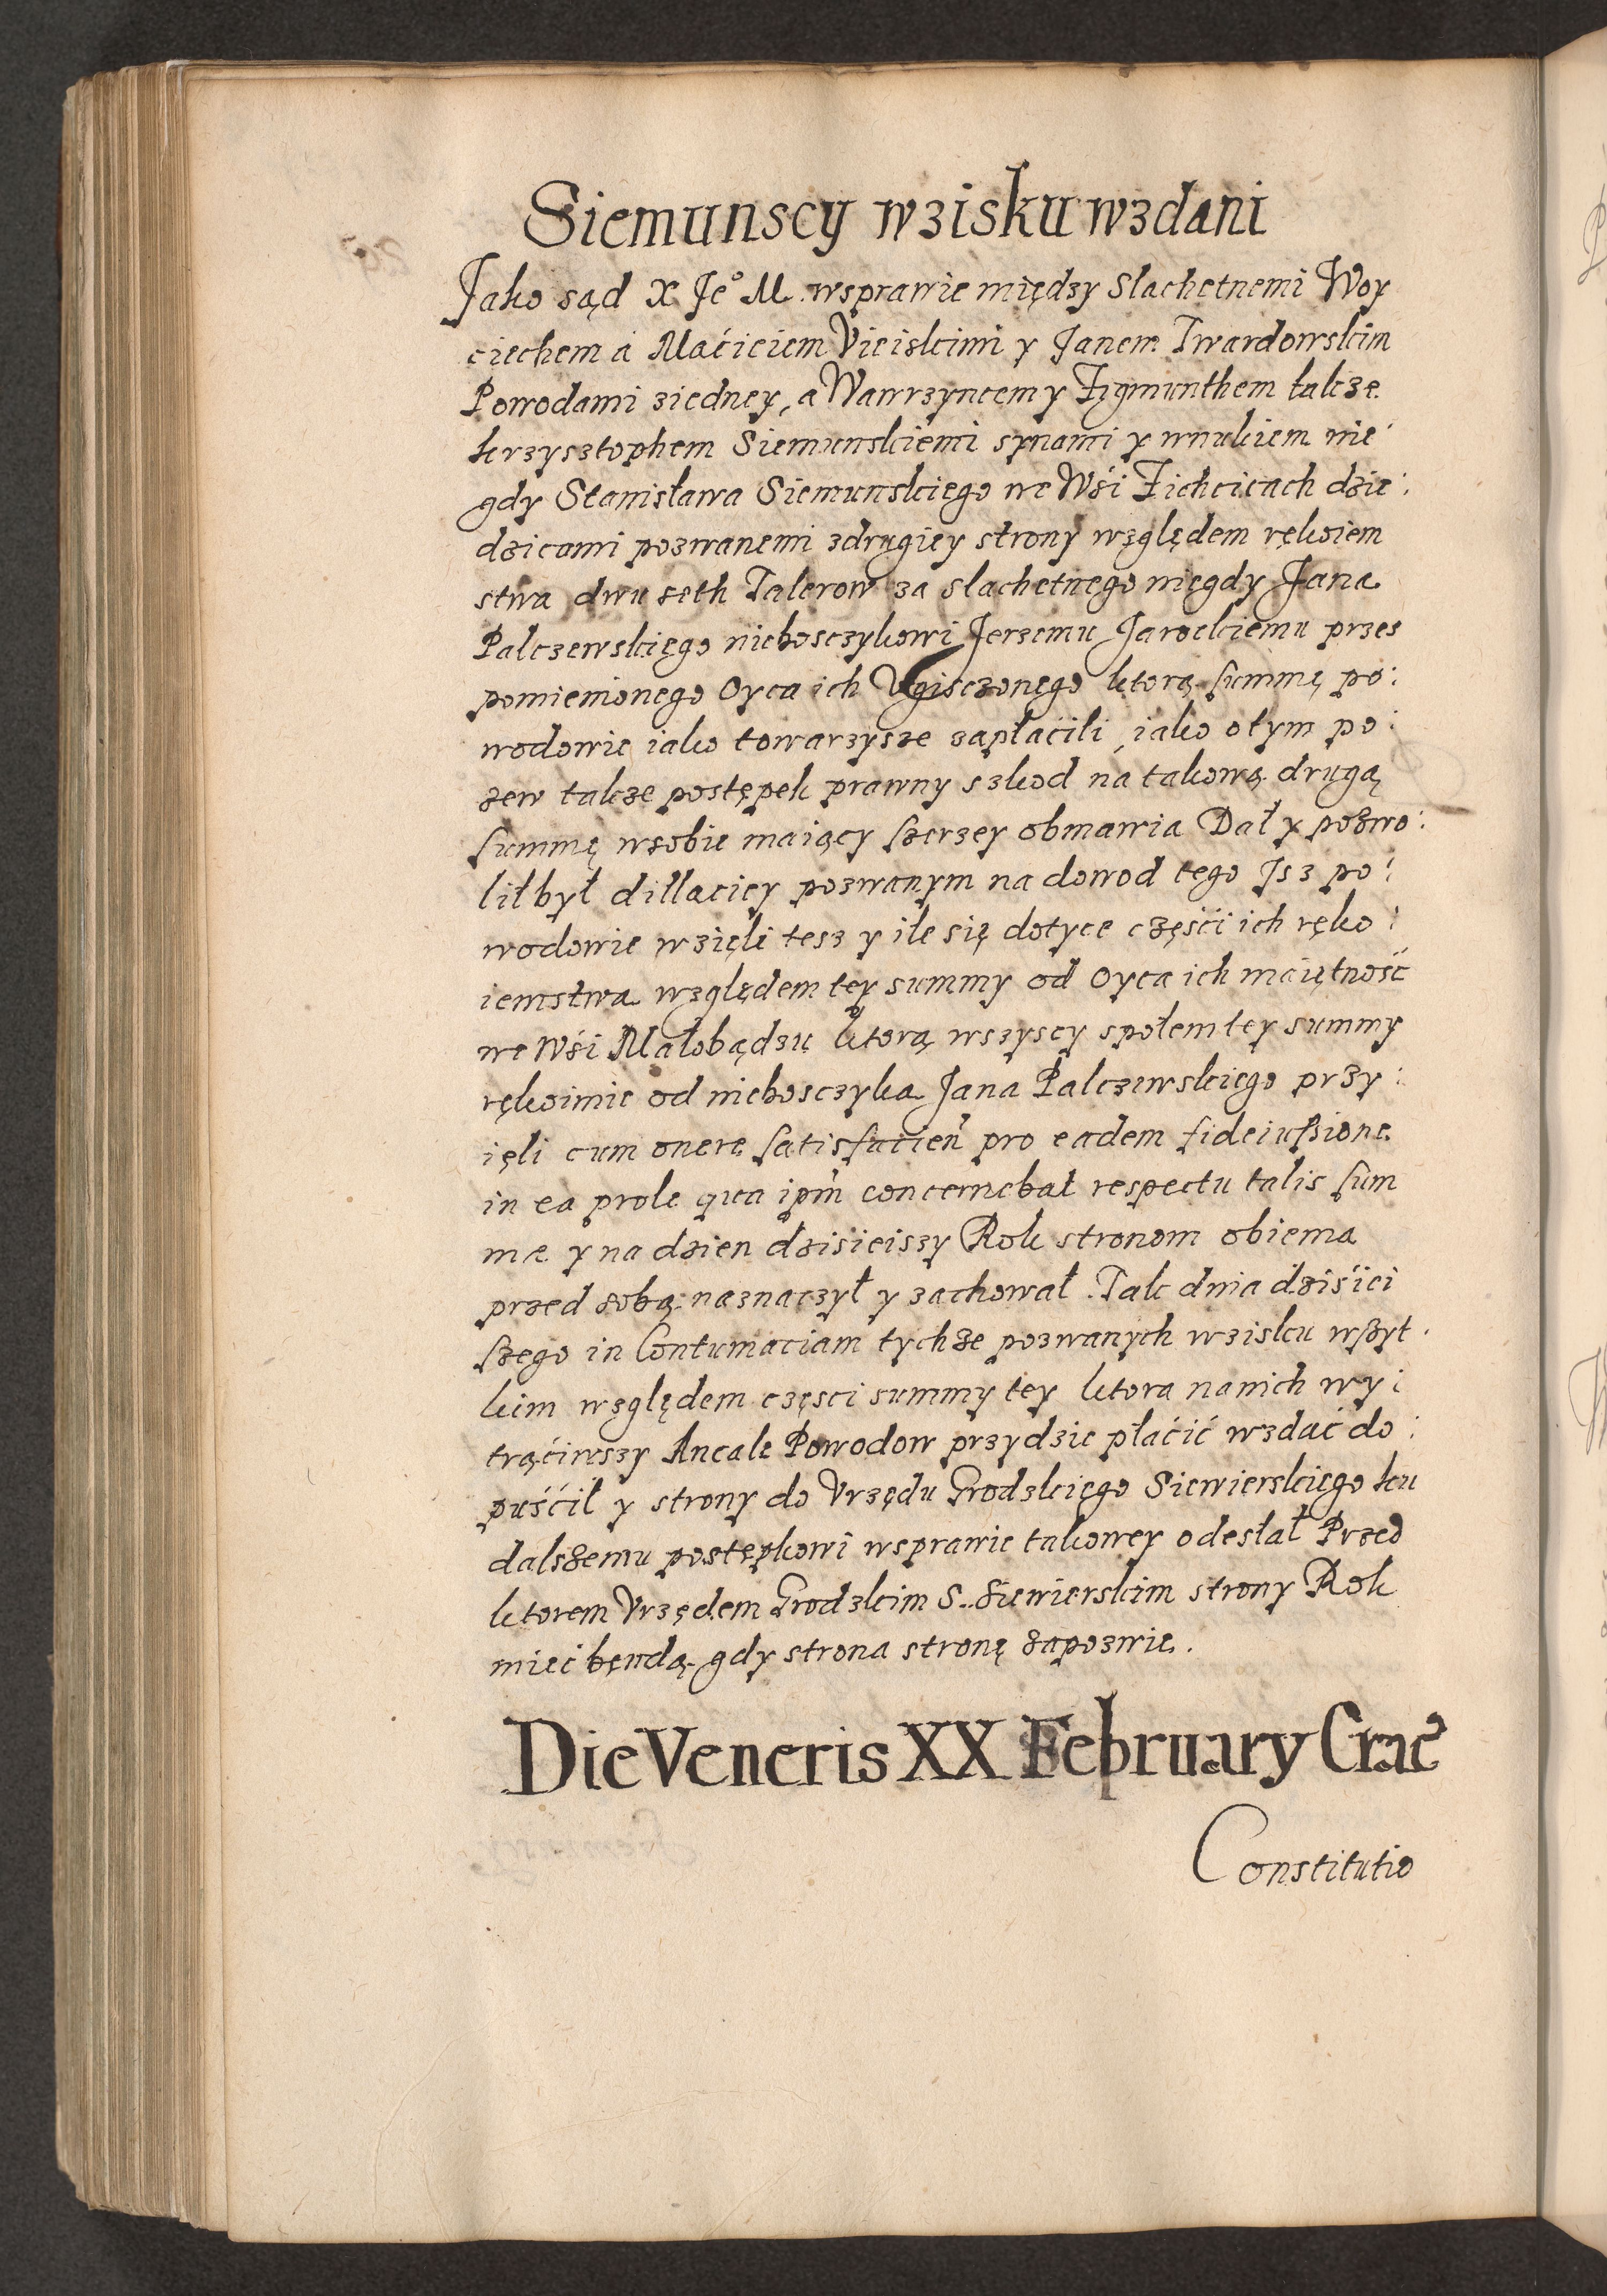 Siemunscy wzisku wzdani
Jako sąd X Je° M. wsprawie między Slachetnemi Woy
ciechem á Maćieiem Vieiskimi y Janem Twardowskim
Powodami ziedney, a Wawrzyncem y Zygmunthem takze
krzysztophem Siemunskiemi synami y wnukiem nie:
gdy Stanisława Siemunskiego we Wśi Zichcicach dzie:
dzicami pozwanemi zdrugiey strony względem rękoiem
stwa dwu seth Talerow za slachetnego niegdy Jana
Palczewskiego nieboszczykowi Jerzemu Jarockiemu przes
pomienionego Oyca ich Vgisczonego ktorą summę po:
wodowie iako towarzysze zapłaćili, iako otym po:
zew takze postępek prawny szkod na takową drugą
summę wsobie maiący szerzey obmawia Dał y pozwo:
lił był dillaciey pozwanym na dowod tego Jsz po:
wodowie wzięli tesz y ile się dotyce częśći ich ręko:
iemstwa względem tey summy od Oyca ich maiętność
we Wśi Małobądzu ktorą wszyscy społem tey summy
rękoimie od nieboszczyka Jana Palczewskiego przy:
ięli cum onere satisfacień pro eadem fideiussione
in ea prole qua ipm concernebat respectu talis sum
mæ y na dzien dzisieiszy Rok stronom obiema
przed sobą naznaczył y zachował. Tak dnia dziśiei
szego in Contumaciam tychze pozwanych wzisku wszyt:
kim względem częsci summy tey ktora nanich wy:
trąćiwszy Ancale Powodow przydzie płaćić wzdać do:
puśćił y strony do Vrzędu Grodzkiego Siewierskiego ku
dalszemu postępkowi wsprawie takowey odesłał Przed
ktorem Vrzędem Grodzkim S. Siewierskim strony Rok
mieć bęndą gdy strona stronę zapozwie.
Die Veneris XX February Crac
Constitutio